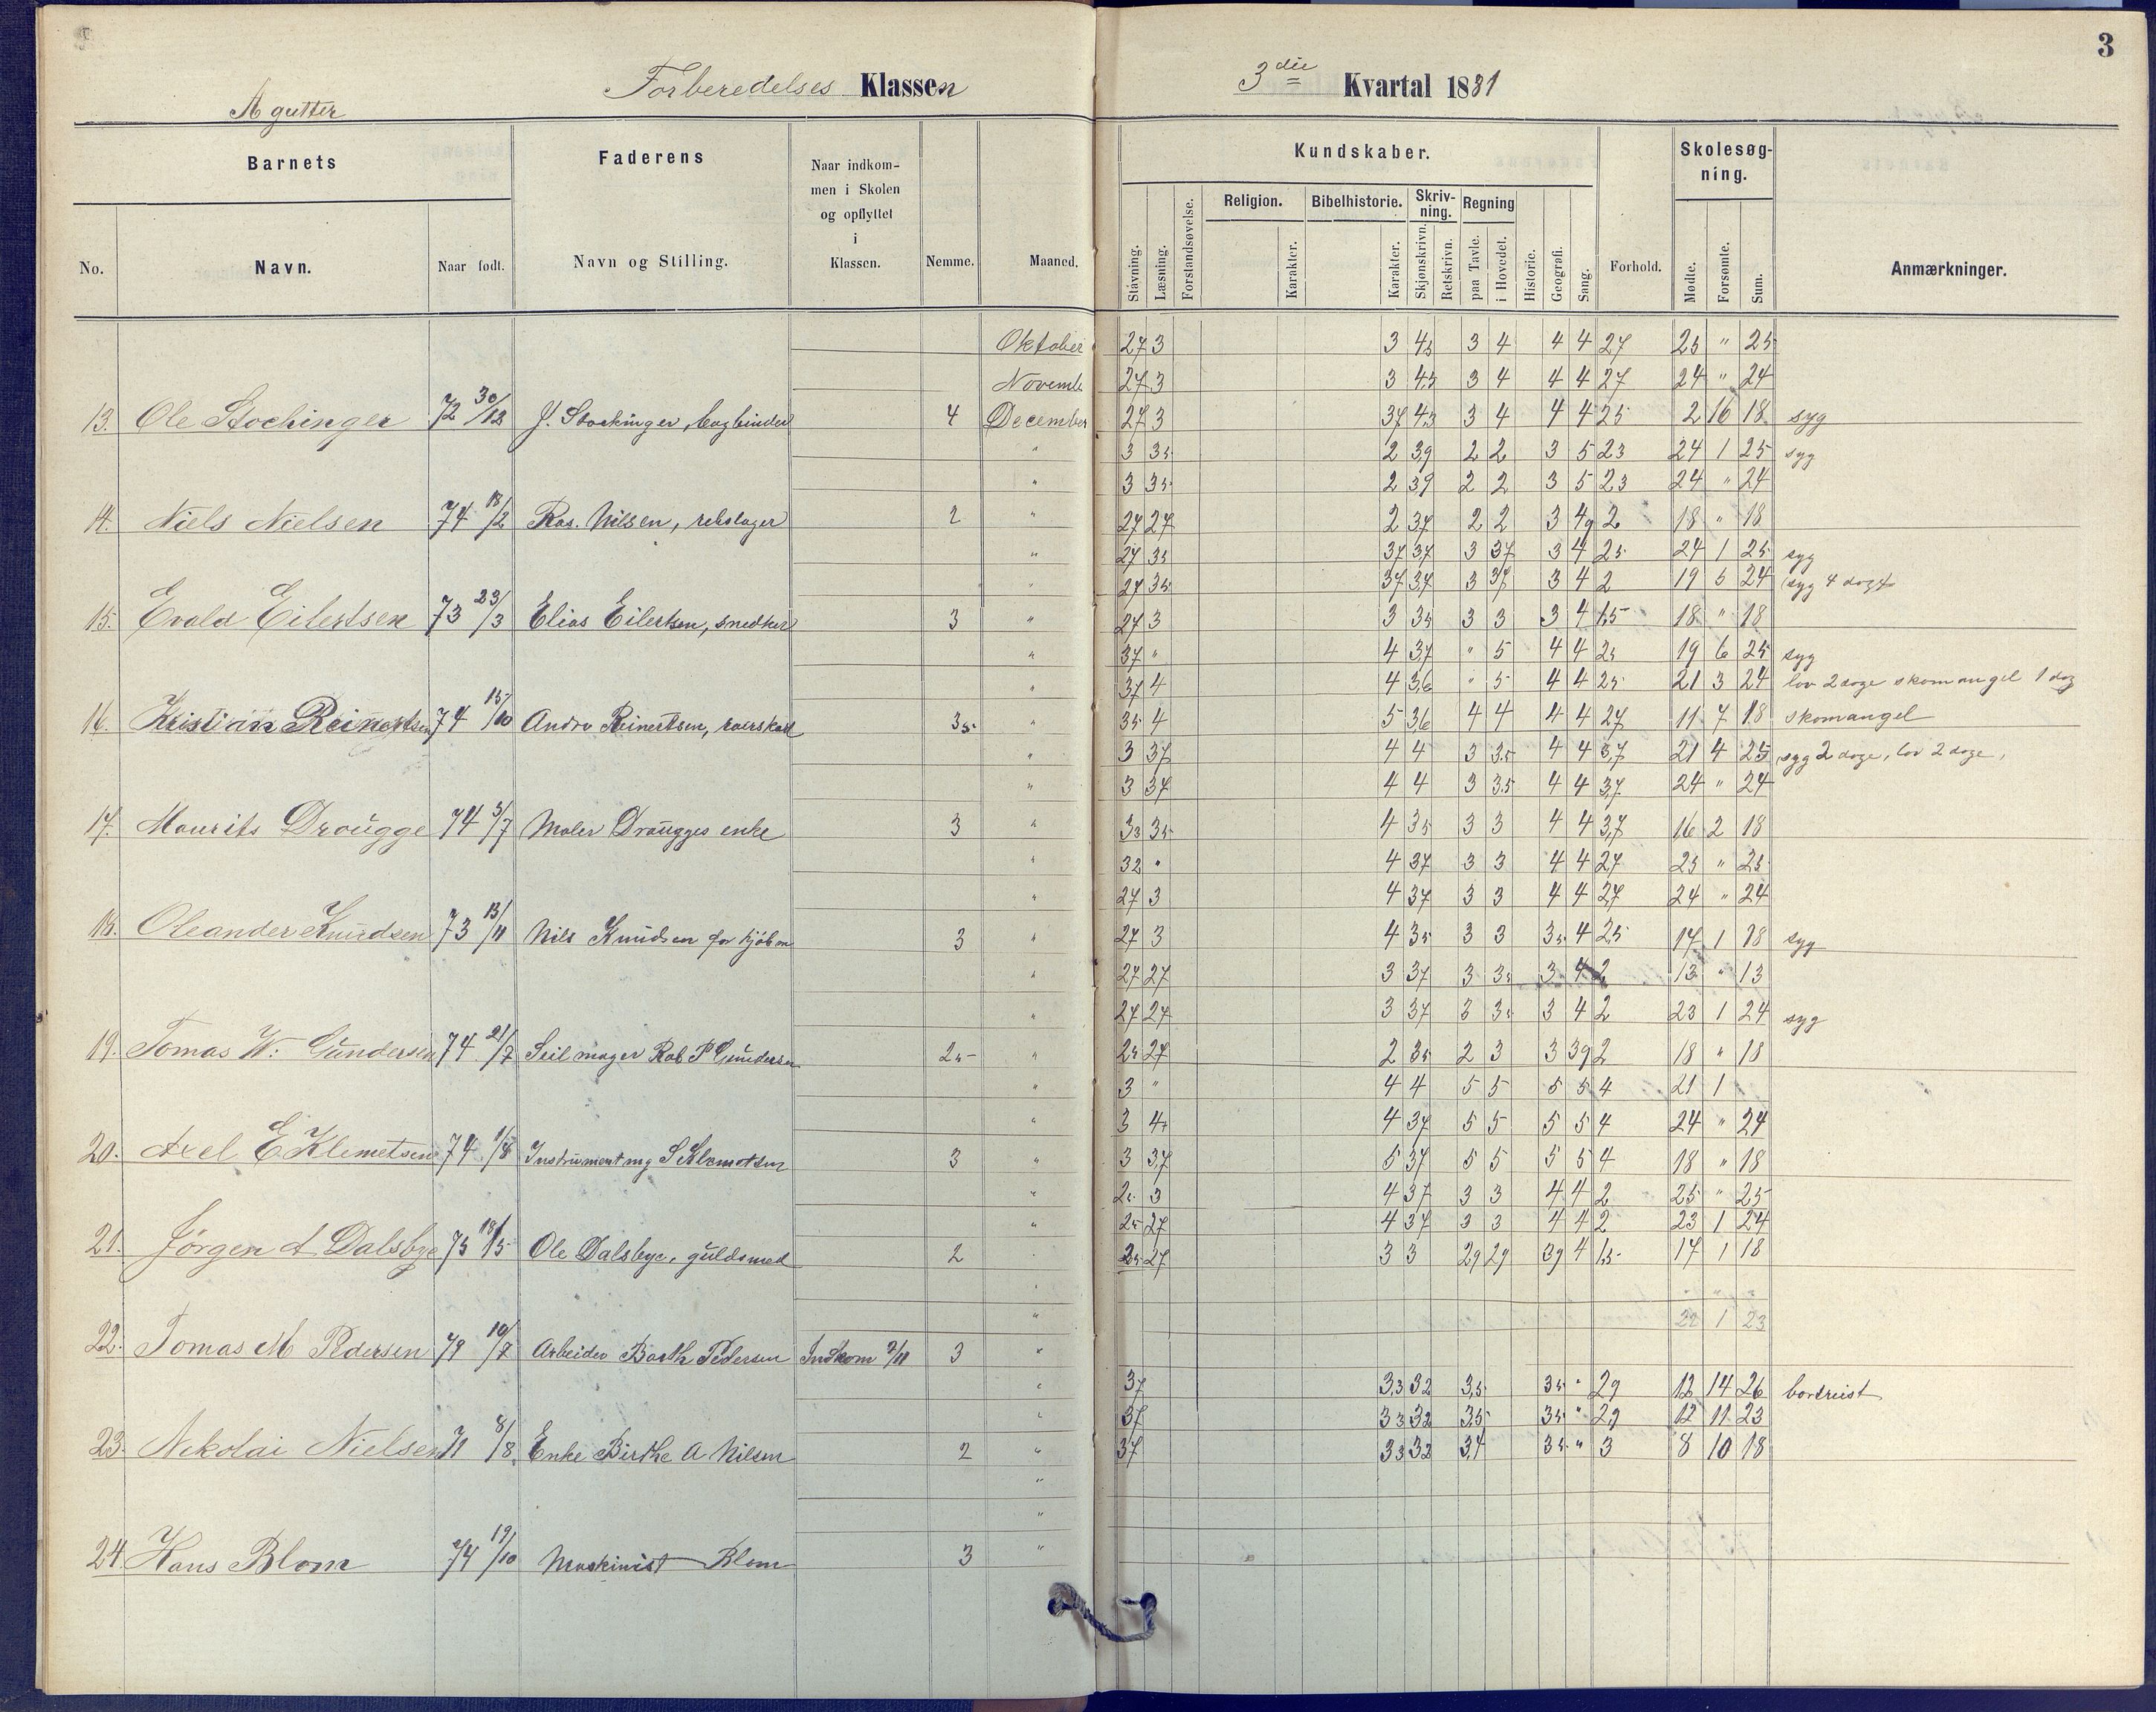 3
Forberedelses Klassen
3die Kvartal 1881
A gutter
Barnets
Faderens
Naar indkom-
men i Skolen
og opflyttet
i
Klassen.
No.
Navn.
Naar født.
Navn og Stilling.
Nemme.
Maaned.
Kundskaber.
Skolesøg-
ning.
Religion.
Bibelhistorie.
Skriv-
ning.
Regning
Stavning.
Læsning.
Forstandsøvelse.
Karakter.
Karakter.
Skjønskrivn.
Retskrivn.
paa Tavle.
i Hovedet.
Historie.
Geografi.
Sang.
Forhold.
Mødte.
Forsømte.
Sum.
Anmærkninger.
Oktober 27 3 3 45 3 4 4 4 27 25 " 25
Novemb 27 3 3 45 3 4 4 4 27 24 " 24
13. Ole Stochinger 72 30/12 J. Stockinger, bogbinder 4 December 27 3 37 43 3 4 4 4 25 2 16 18 syg
" 3 35 2 39 2 2 3 5 23 24 1 25 syg
" 3 35 2 39 2 2 3 5 23 24 " 24
14. Niels Nielsen 74 18/2 Ras. Nilsen, rebslager 2 " 27 27 2 37 2 2 3 49 2 18 " 18
" 27 35 37 37 3 37 3 4 25 24 1 25 syg
" 27 35 37 37 3 37 3 4 2 19 5 24 syg 4 dage
15. Evald Eilertsen 73 23/3 Elias Eilertsen, snedker 3 " 27 3 3 35 3 3 3 4 1,5 18 " 18
" 37 " 4 37 " 5 4 4 25 19 6 25 syg
" 37 4 4 36 " 5 4 4 25 21 3 24 lov 2 dage skomangel 1 dag
16. Kristian Reinertsen 74 15/10 Andr Reinertsen, 35 " 35 4 5 36 4 4 4 4 27 11 7 18 skomangel
" 3 37 4 4 3 35 4 4 3,7 21 4 25 syg 2 dage, lov 2 dage,
" 3 37 4 4 3 35 4 4 37 24 " 24
17. Maurits Drougge 74 3/7 Maler Drougges enke 3 " 33 35 4 35 3 3 4 4 3,7 16 2 18
" 32 " 4 37 3 3 4 4 27 25 " 25
" 27 3 4 37 3 3 4 4 27 24 " 24
18. Oleander Knudsen 73 13/11 Nils Knudsen 3 " 27 3 4 35 3 3 35 4 25 17 1 18 syg
" 27 27 3 37 3 35 3 4 2 13 " 13
" 27 27 3 37 3 35 3 4 2 23 1 24 syg
19. Tomas W. Gundersen 74 21/7 Seilmager Rob P Gundersen 25 " 25 27 2 35 2 3 3 39 2 18 " 18
" 3 " 4 4 5 5 5 5 4 21 1
" 3 4 4 37 5 5 5 5 4 24 " 24
20. Axel E Klemetsen 74 1/8 Instrumentmg S Klemetsen 3 " 3 3,7 5 37 5 5 5 5 4 18 " 18
" 25 3 4 37 3 3 4 4 2 25 " 25
" 25 27 4 37 3 3 4 4 2 23 1 24
21. Jørgen A Dalsbye 75 18/5 Ole Dalsbye, guldsmed 2 " 25 27 3 3 29 29 39 4 1,5 17 1 18
"
" 22 1 23
22. Tomas M Pedersen 10/7 Arbeider Barth Pedersen Indkom 2/11 3 "
" 37 3,3 32 3,5 35 " 29 12 14 26 bortreist
" 37 33 32 35 35 " 29 12 11 23
23. Nikolai Nielsen 71 8/8 Enke Birthe A Nilsen 2 " 37 33 32 34 35 " 3 8 10 18
"
"
24. Hans Blom 74 19/10 Maskinist Blom 3 "